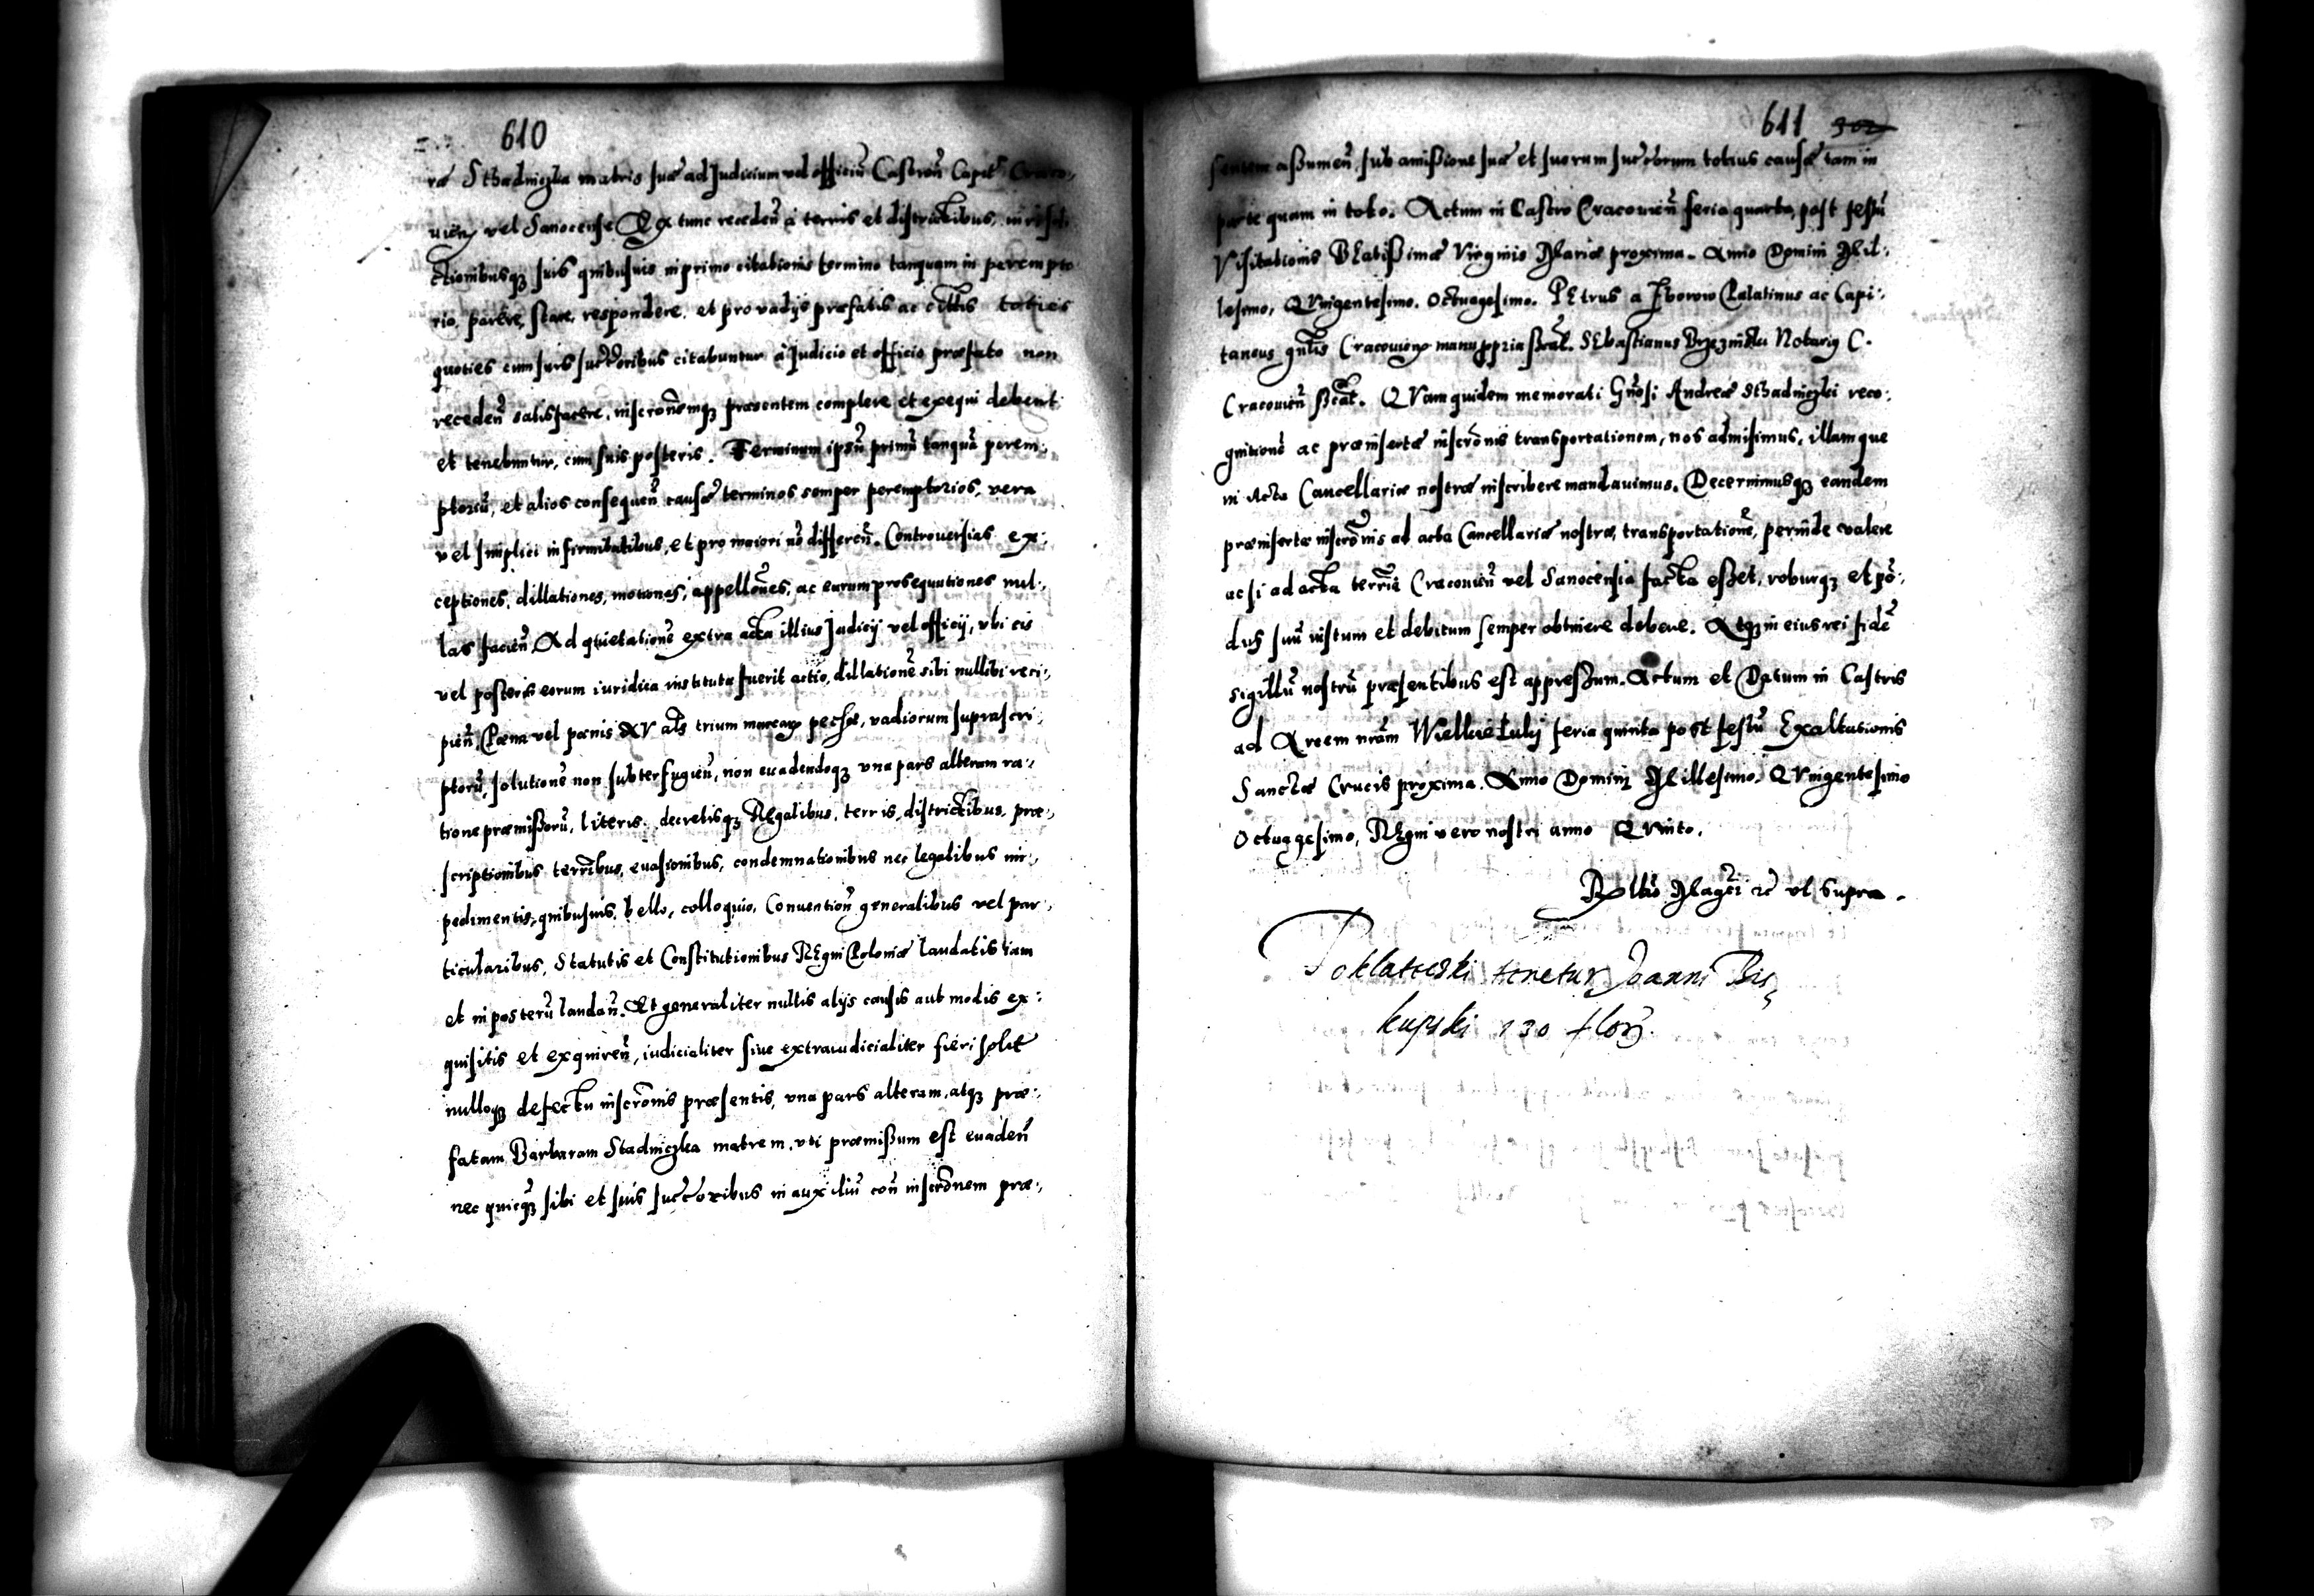 610
ræ Sthadniczka matris suæ ad Judicium vel officiũ Castreñ Capitˢ Craco,
uieñ vel Sanocense Ex tunc recedeñ à terris et districtibus, iurisdi
ctionibusq₃ suis quibusuis in primo citationis termino tanquam in perempto
rio, parere, stare, respondere, et pro vadijs præfatis ac toties
quoties cum suis succ̃oribus citabuntur à Judicio et officio præfato non
recedeñ satisfacere, inscrõnemq₃ præsentem complere et exequi debent
et tenebuntur, cum suis posteris. Terminum ipsũ primũ tanquã perem,
ptoriũ, et alios consequeñ causæ terminos semper peremptorios, vera
vel simplici infirmitatibus, et pro maiori nõ differeñ. Controuersias ex,
ceptiones, dillationes, motiones, appellões, ac earum prosequutiones nul,
las facieñ. Ad quietationẽ extra acta illius Judicij vel officij, vbi eis
vel posteris eorum iuridica instituta fuerit actio, dillationẽ sibi nullibi reci,
pieñ. Pœna vel pœnis XV als trium marcarum pechæ, vadiorum suprascri
ptorũ, solutionẽ non subterfugieñ, non euadendoq₃ vna pars alteram ra,
tione præmissorũ, literis, decretisq₃ REgalibus, terris, districtibus, præ,
scriptionibus terrr̃ibus, euasionibus, condemnationibus nec legalibus im,
pedimentis, quibusuis, bello, colloquio, Conuentioñ generalibus vel par,
ticularibus, Statutis et Constitutionibus REgni Poloniæ laudatis iam
et in posterũ laudañ. Et generaliter nullis alijs causis aut modis ex,
quisitis et exquireñ, iudicialiter siue extraiudicialiter fieri solit̃
nulloq₃ defectu inscrõnis præsentis, vna pars alteram, atq₃ præ,
fatam Barbaram Stadniczka matrem, vti præmissum est euadeñ
nec quicq₃ sibi et suis succ̃oribus in auxiliũ coñ inscrõnem præ,
611 302
sentem assumeñ, sub amissione suæ et suorum succ̃orum totius causæ tam in
parte quam in toto. Actum in Castro Cracouieñ feria quarta, post festũ
Visitationis BEatissimæ Virginis Mariæ proxima. Anno Domini Mil,
lesimo, QVingentesimo, Octuagesimo. PEtrus a Zborow Palatinus ac Capi,
taneus gñlis Cracouieñ manu ppria sst. SEbastianus Brzezinski Notarius C.
Cracouieñ sst. QVam quidem memorati Gñosi Andreæ Sthadniczki reco,
gnitionẽ ac præinsertæ inscrõnis transportationem, nos admisimus, illamque
in Acta Cancellariæ nostræ inscribere mandauimus. Decernimusq₃ eandem
præinsertæ inscrõnis ad acta Cancellariæ nostræ, transportationẽ, perinde valere
ac si ad acta terrr̃ia Cracouieñ vel Sanocensia facta esset, roburq₃ et põ,
dus suũ iustum et debitum semper obtinere debere. Atq₃ in eius rei fidẽ
sigillũ nostrũ præsentibus est appressum. Actum et Datum in Castris
ad Arcem nrãm Wielkie Luky feria quinta post festũ Exaltationis
Sanctæ Crucis proxima. Anno Domini Millesimo, QVingentesimo
Octuagesimo, REgni vero nostri anno QVinto.
Rltio Magci ꝛc̃ vt supra.
Poklateczki tenetur Joanni Bis
kupski 130 flor̃.